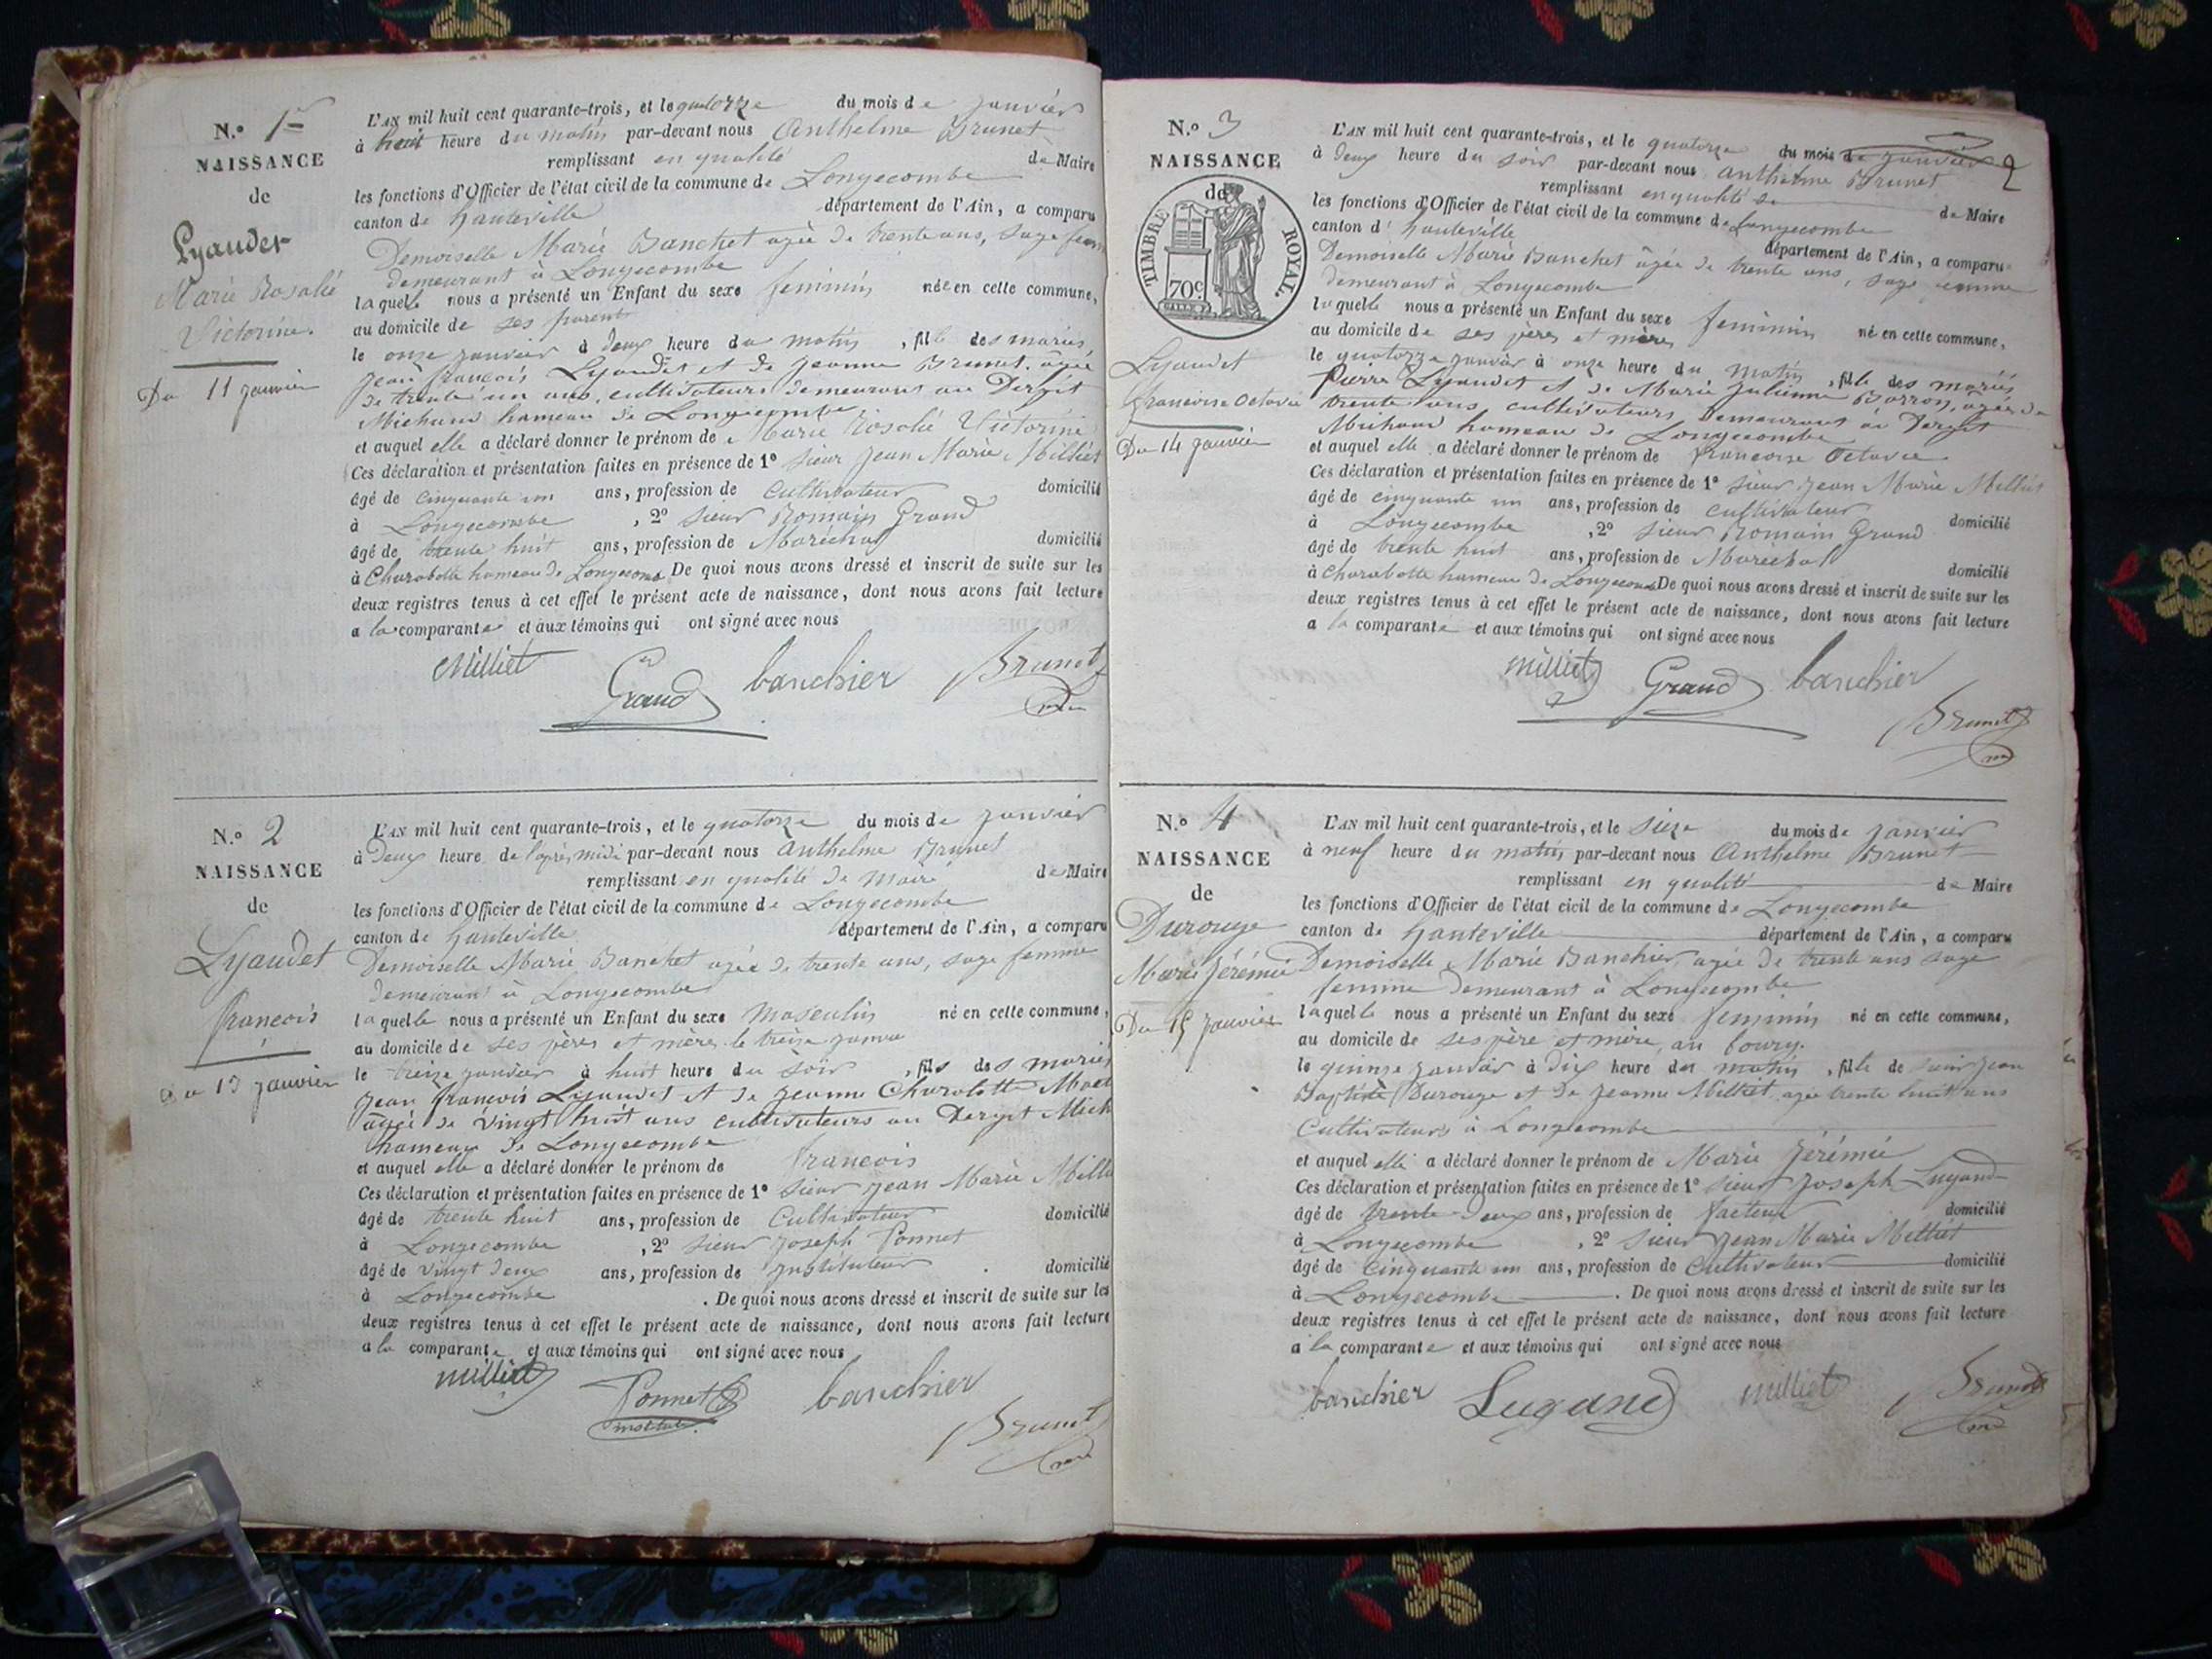 N.º 1er
NAISSANCE
de
Lyaudet
Marie Rosalie
Victorine.
Du 11 janvier
L'AN mil huit cent quarante-trois, et le quatorze du mois de janvier
à huit heure du matin par-devant nous Anthelme Brunet
remplissant en qualité de Maire
les fonctions d'Officier de l'état civil de la commune de Longecombe
canton de hauteville département de l'Ain, a comparu
Demoiselle Marie Banchet agée de trente ans, sage fem
demeurant à Longecombe
laquelle nous a présenté un Enfant du sexe feminin née en cette commune,
au domicile de ses parent
le onze janvier à deux heure du matin, fille des mariés
jean françois Lyaudet et de jeanne Brunet. agée
de trente un ans, cultivateurs demeurant au Dergit
Michaud hameau de Longecombe
et auquel elle a déclaré donner le prénom de Marie Rosalie Victorine
Ces déclaration et présentation faites en présence de 1º sieur jean Marie Milliet
âgé de cinquante un ans, profession de Cultivateur domicilié
à Longecombe, 2º sieur Romain Grand
âgé de trente huit ans, profession de Maréchal domicilié
à Charabotte hameau de Longecombe De quoi nous avons dressé et inscrit de suite sur les
deux registres tenus à cet effet le présent acte de naissance, dont nous avons fait lecture
a la comparante et aux témoins qui ont signé avec nous
Milliet Grand banchier Brunet
N.º 2
NAISSANCE
de
Lyaudet
françois
Du 13 janvier
L'AN mil huit cent quarante-trois, et le quatorze du mois de janvier
à Deux heure de l'après midi par-devant nous Anthelme Brunet
remplissant en qualité de Maire de Maire
les fonctions d'Officier de l'état civil de la commune de Longecombe
canton de hauteville département de l'Ain, a comparu
Demoiselle Marie Banchet agée de trente ans, sage femme
demeurant à Longecombe
laquelle nous a présenté un Enfant du sexe Masculin né en cette commune,
au domicile de ses pères et mères le treize
le treize janvier à huit heure du soir, fils des mariés
jean françois Lyaudet et de jeanne Charolotte
agée de vingt huit ans cultivateurs au Dergit Mich
hameau de Longecombe
et auquel elle a déclaré donner le prénom de françois
Ces déclaration et présentation faites en présence de 1º sieur jean Marie Millie
âgé de trente huit ans, profession de Cultivateur domicilié
à Longecombe, 2º sieur joseph Ponnet
âgé de vingt deux ans, profession de instituteur domicilié
à Longecombe. De quoi nous avons dressé et inscrit de suite sur les
deux registres tenus à cet effet le présent acte de naissance, dont nous avons fait lecture
a la comparante et aux témoins qui ont signé avec nous
milliet Ponnet banchier Brunet
N.º 3
NAISSANCE
de
TIMBRE ROYAL.
70c
Lyaudet
francoise Octavie
Du 14 janvier
2
L'AN mil huit cent quarante-trois, et le quatorze du mois de janvier
à deux heure du soir par-devant nous anthelme Brunet
remplissant en qualité de de Maire
les fonctions d'Officier de l'état civil de la commune de Longecombe
canton d' hauteville département de l'Ain, a comparu
Demoiselle Marie Banchet agée de trente ans, sage femme
demeurant à Longecombe
laquelle nous a présenté un Enfant du sexe feminin né en cette commune,
au domicile de ses pères et mères
le quatorze janvier à onze heure du matin, fille des mariés
Pierre Lyaudet et de Marie julienne Barron, agée de
trente ans cultivateurs demeurant au Dergit
Michaud hameau de Longecombe
et auquel elle a déclaré donner le prénom de francoise Octavie
Ces déclaration et présentation faites en présence de 1º sieur jean Marie Milliet
âgé de cinquante un ans, profession de cultivateur domicilié
à Longecombe, 2º sieur Romain Grand
âgé de trente huit ans, profession de Marechal domicilié
à Charabotte hameau de Longecombe De quoi nous avons dressé et inscrit de suite sur les
deux registres tenus à cet effet le présent acte de naissance, dont nous avons fait lecture
a la comparante et aux témoins qui ont signé avec nous
milliet Grand banchier
Brunet
N.º 4
NAISSANCE
de
Durouge
Marie Jérémie
Du 15 janvier
L'AN mil huit cent quarante-trois, et le sieze du mois de janvier
à neuf heure du matin par-devant nous Anthelme Brunet
remplissant en qualité de Maire
les fonctions d'Officier de l'état civil de la commune de Longecombe
canton de hauteville département de l'Ain, a comparu
Demoiselle Marie Banchier agée de trente ans sage
femme demeurant à Longecombe
laquelle nous a présenté un Enfant du sexe feminin né en cette commune,
au domicile de ses père et mère, au bourg.
le quinze janvier à dix heure du matin, fille de sieur jean
Baptiste Durouge et de jeanne Milliet agée trente huit ans
Cultivateurs à Longecombe
et auquel elle a déclaré donner le prénom de Marie Jérémie
Ces déclaration et présentation faites en présence de 1º sieur joseph Lugand
âgé de trente deux ans, profession de facteur domicilié
à Longecombe, 2º sieur jean Marie Milliet
âgé de cinquante un ans, profession de Cultivateur domicilié
à Longecombe. De quoi nous avons dressé et inscrit de suite sur les
deux registres tenus à cet effet le présent acte de naissance, dont nous avons fait lecture
a la comparante et aux témoins qui ont signé avec nous
banchier Lugand milliet Brunet